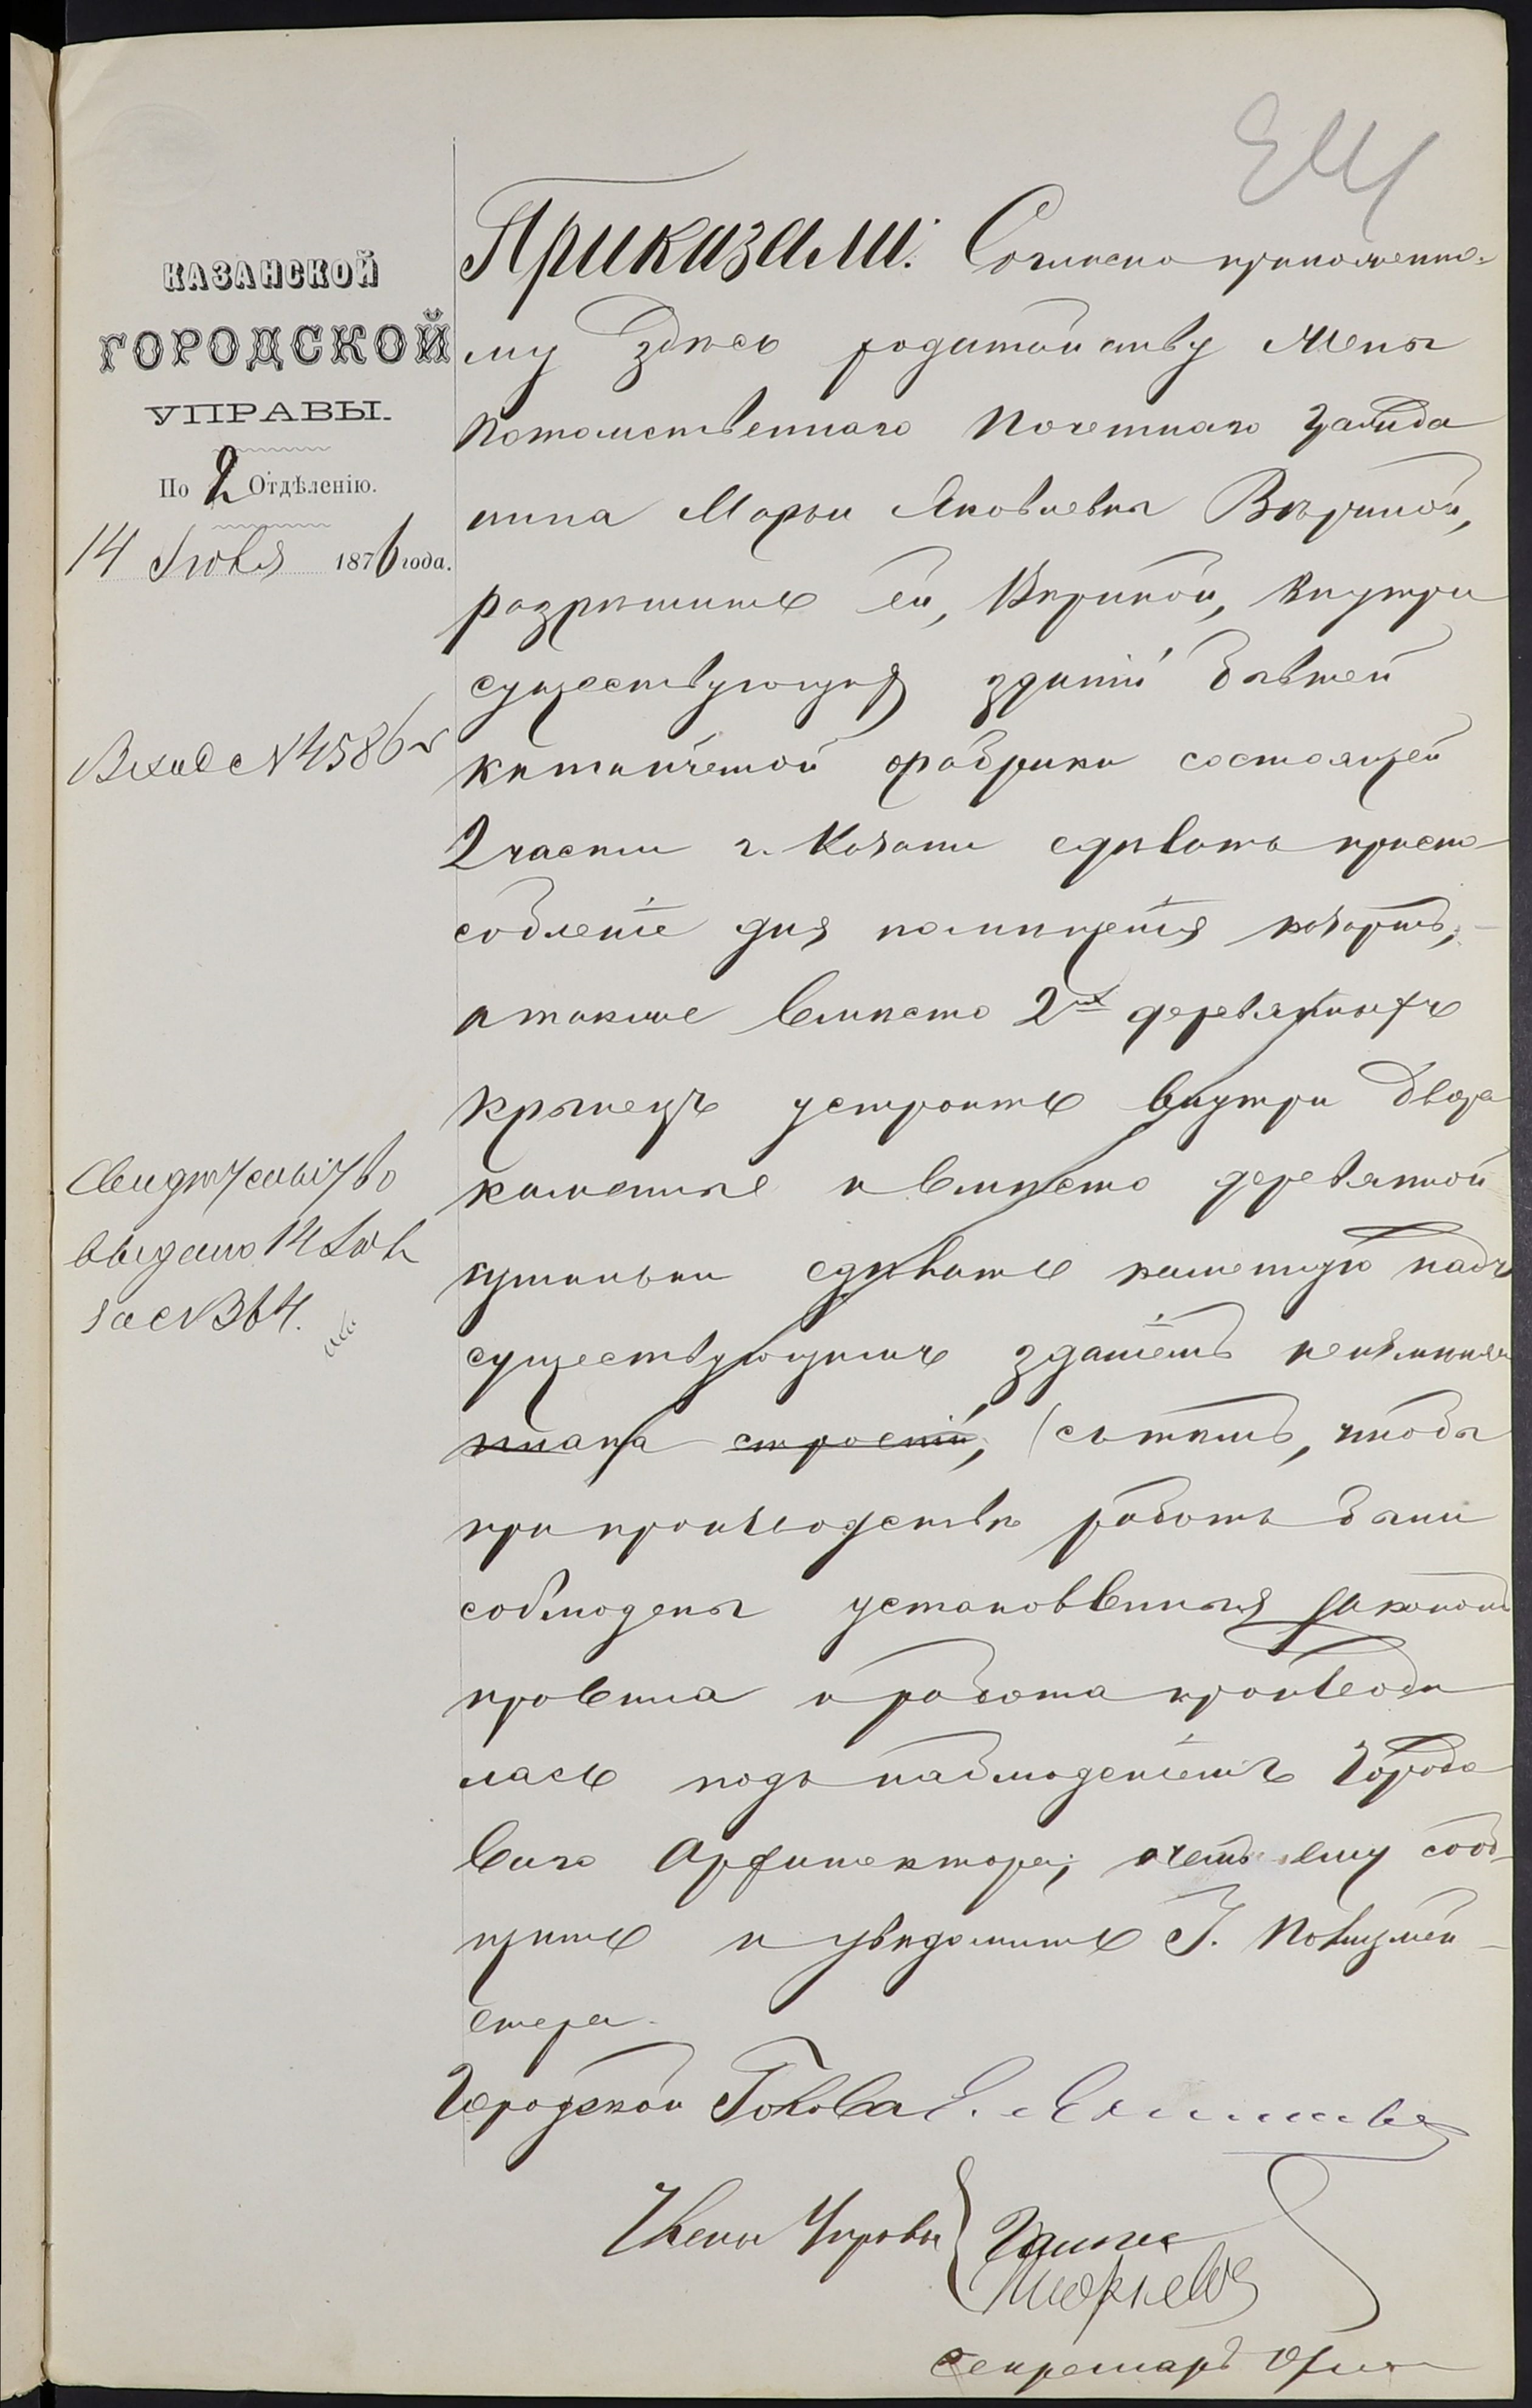 КАЗАНСКОЙ
ГОРОДСКОЙ
УПРАВЫ.
По 2 Отдѣленію.
14 Іюля 1876 года.
Вход. № 4586
Свидѣтельство
выдано 14 Іюля
за № 364.
Приказали: Согласно приложенно-
му здѣсь ходатайству жены
Потомственнаго Почетнаго Гражда
нина Марьи Яковлевны Вѣриной,
разрѣшить ей, Вѣриной, внутри
существующихъ зданій бывшей
китаичетой фабрики состоящей
2 части г. Казани сдѣлать приспо-
собленіе для помѣщенія казармъ,
а также вмѣсто 2хъ деревянныхъ
крылецъ устроить внутри двора
каменные и вмѣсто деревянной
сдѣлать каменную надъ
существующимъ зданіемъ
плана строеній, съ тѣмъ, чтобы
при производствѣ работъ были
соблюдены установленныя закономъ
правила и работа производи
лась подъ наблюденіемъ Городо
ваго Архитектора, о чемъ ему сооб-
щить и увѣдомить Г. Полицмей-
стера.
Городской Голова
Члены Управы
Секретарь